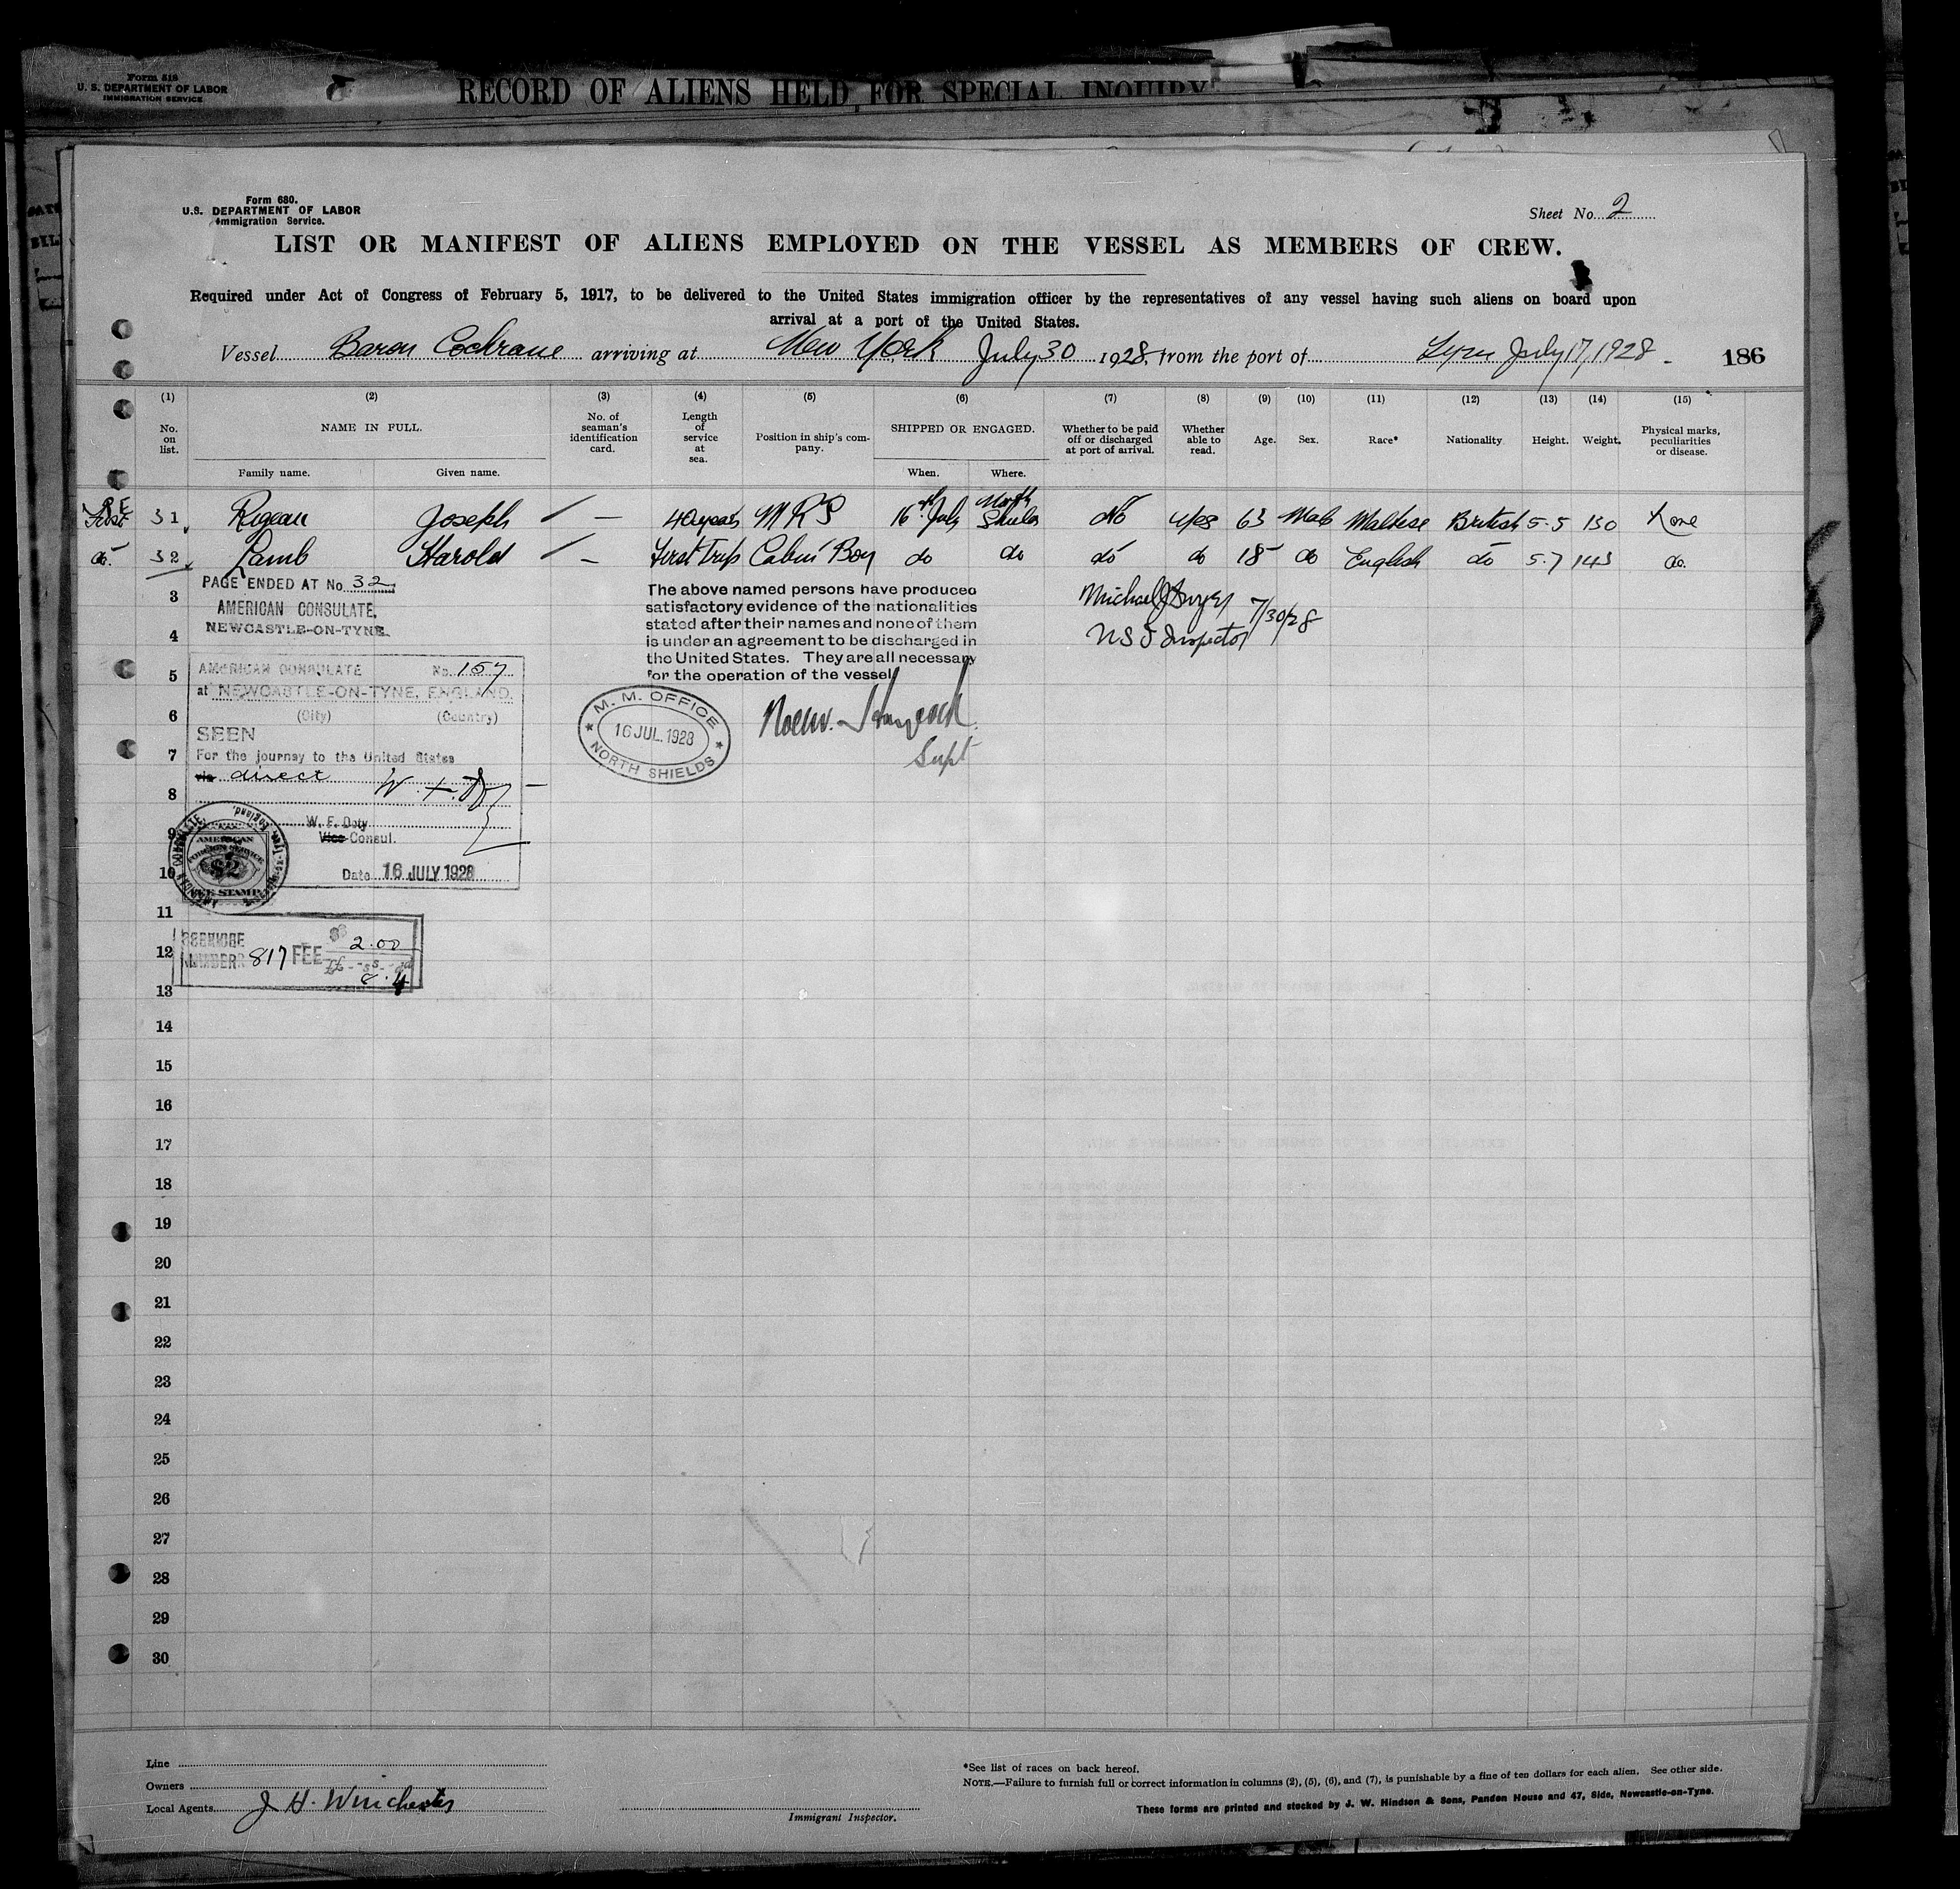 Form 518
U. S. DEPARTMENT OF LABOR
IMMIGRATION SERVICE
RECORD OF ALIENS HELD FOR SPECIAL INQUIRY
Form 680.
U.S. DEPARTMENT OF LABOR
Immigration Service.
Sheet No. 2
LIST OR MANIFEST OF ALIENS EMPLOYED ON THE VESSEL AS MEMBERS OF CREW.
Required under Act of Congress of February 5, 1917, to be delivered to the United States immigration officer by the representatives of any vessel having such aliens on board upon
arrival at a port of the United States.
Vessel Baron Cochrane arriving at New York July 30 1928, from the port of Tyne July 17, 1928. 186
(1) (2) (3) (4) (5) (6) (7) (8) (9) (10) (11) (12) (13) (14) (15)
No. on list.
NAME IN FULL.
Family name. Given name.
No. of seaman's identification card.
Length of service at sea.
Position in ship's company.
SHIPPED OR ENGAGED.
When. Where.
Whether to be paid off or discharged at port of arrival.
Whether able to read.
Age. Sex. Race* Nationality. Height. Weight.
Physical marks, peculiarities or disease.
31 Joseph — 40 years M R S 16th July North Shields No Yes 63 Male Maltese British 5.5 130 None
do. 32 Lamb Harold — First Trip Cabin Boy do do do do 18 do English do 5.7 143 do.
PAGE ENDED AT No. 32
AMERICAN CONSULATE,
NEWCASTLE-ON-TYNE.
The above named persons have produced
satisfactory evidence of the nationalities
stated after their names and none of them
is under an agreement to be discharged in
the United States. They are all necessary
for the operation of the vessel
Michael J Dwyer 7/30/28
US I Inspector
AMERICAN CONSULATE No. 157
at NEWCASTLE-ON-TYNE, ENGLAND.
(City) (Country)
SEEN
For the journey to the United States
via direct
W. F. Doty
Vice Consul.
Date 16 JULY 1928
M. M. OFFICE
16 JUL. 1928
NORTH SHIELDS
Supt
AMERICAN
FOREIGN SERVICE
$2
FEE STAMP
SERVICE
NUMBER 817 FEE $ 2.00
8.4
3
4
5
6
7
8
9
10
11
12
13
14
15
16
17
18
19
20
21
22
23
24
25
26
27
28
29
30
Line
Owners
Local Agents J H. Winchester
Immigrant Inspector.
*See list of races on back hereof.
NOTE.—Failure to furnish full or correct information in columns (2), (5), (6), and (7), is punishable by a fine of ten dollars for each alien. See other side.
These forms are printed and stocked by J. W. Hindson & Sons, Pandon House and 47, Side, Newcastle-on-Tyne.